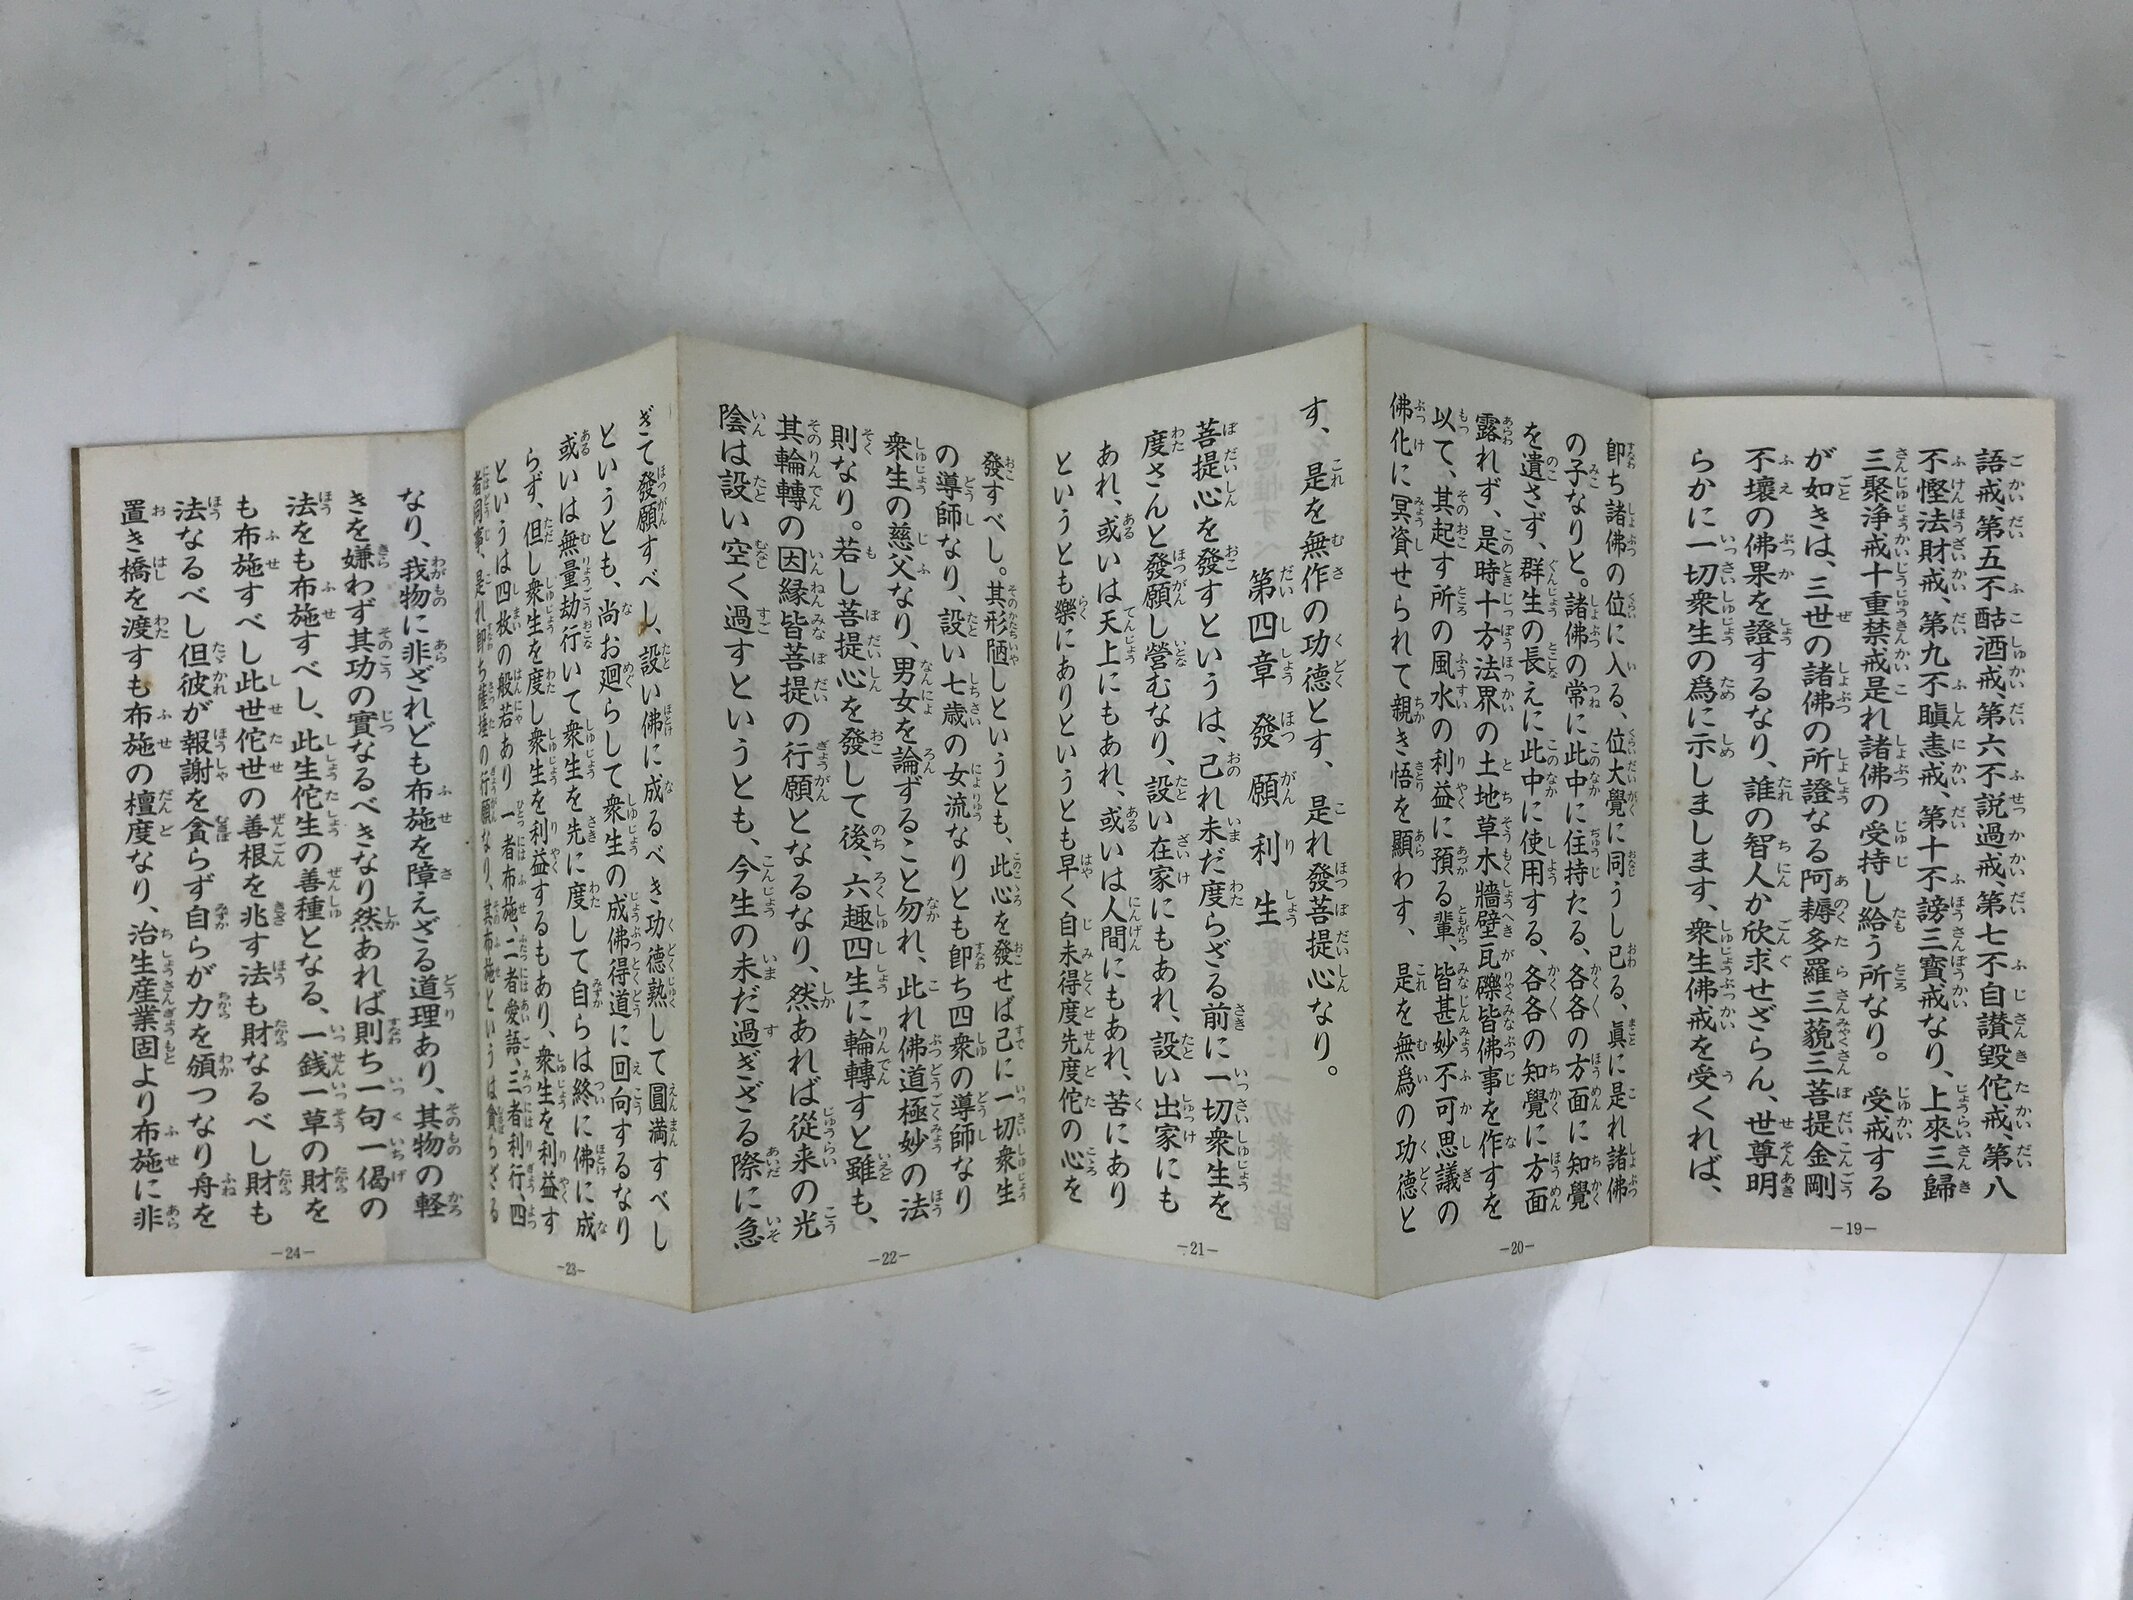 語戒、第五不酤酒戒、第六不説過戒、第七不自讃毀佗戒、第八
不慳法財戒、第九不瞋恚戒、第十不謗三寶戒なり、上來三歸
三聚浄戒十重禁戒是れ諸佛の受持し給う所なり。受戒する
が如きは、三世の諸佛の所證なる阿耨多羅三藐三菩提金剛
不壞の佛果を證するなり、誰の智人か欣求せざらん、世尊明
らかに一切衆生の爲に示しまします、衆生佛戒を受くれば、
-19-
即ち諸佛の位に入る、位大覺に同うし已る、眞に是れ諸佛
の子なりと。諸佛の常に此中に住持たる、各各の方面に知覺
を遺さず、群生の長えに此中に使用する、各各の知覺に方面
露れず、是時十方法界の土地草木牆壁瓦礫皆佛事を作すを
以て、其起す所の風水の利益に預る輩、皆甚妙不可思議の
佛化に冥資せられて親き悟を顯わす、是を無爲の功德と
-20-
す、是を無作の功德とす、是れ發菩提心なり。
第四章 發願利生
菩提心を發すというは、己れ未だ度らざる前に一切衆生を
度さんと發願し營むなり、設い在家にもあれ、設い出家にも
あれ、或いは天上にもあれ、或いは人間にもあれ、苦にあり
というとも樂にありというとも早く自未得度先度佗の心を
-21-
發すべし。其形陋しというとも、此心を發せば已に一切衆生
の導師なり、設い七歳の女流なりとも即ち四衆の導師なり
衆生の慈父なり、男女を論ずること勿れ、此れ佛道極妙の法
則なり。若し菩提心を發して後、六趣四生に輪轉すと雖も、
其輪轉の因縁皆菩提の行願となるなり、然あれば從来の光
陰は設い空く過すというとも、今生の未だ過ぎざる際に急
-22-
ぎて發願すべし、設い佛に成るべき功德熟して圓満すべし
というとも、尚お廻らして衆生の成佛得道に回向するなり
或いは無量劫行いて衆生を先に度して自らは終に佛に成
らず、但し衆生を度し衆生を利益するもあり、衆生を利益す
というは四枚の般若あり一者布施、二者愛語、三者利行、四
者同事、是れ即ち薩埵の行願なり、其布施というは貪らざる
-23-
なり、我物に非ざれども布施を障えざる道理あり、其物の軽
きを嫌わず其功の實なるべきなり然あれば則ち一句一偈の
法をも布施すべし、此生佗生の善種となる、一銭一草の財を
も布施すべし此世佗世の善根を兆す法も財なるべし財も
法なるべし但彼が報謝を貪らず自らが力を頒つなり舟を
置き橋を渡すも布施の檀度なり、治生産業固より布施に非
-24-